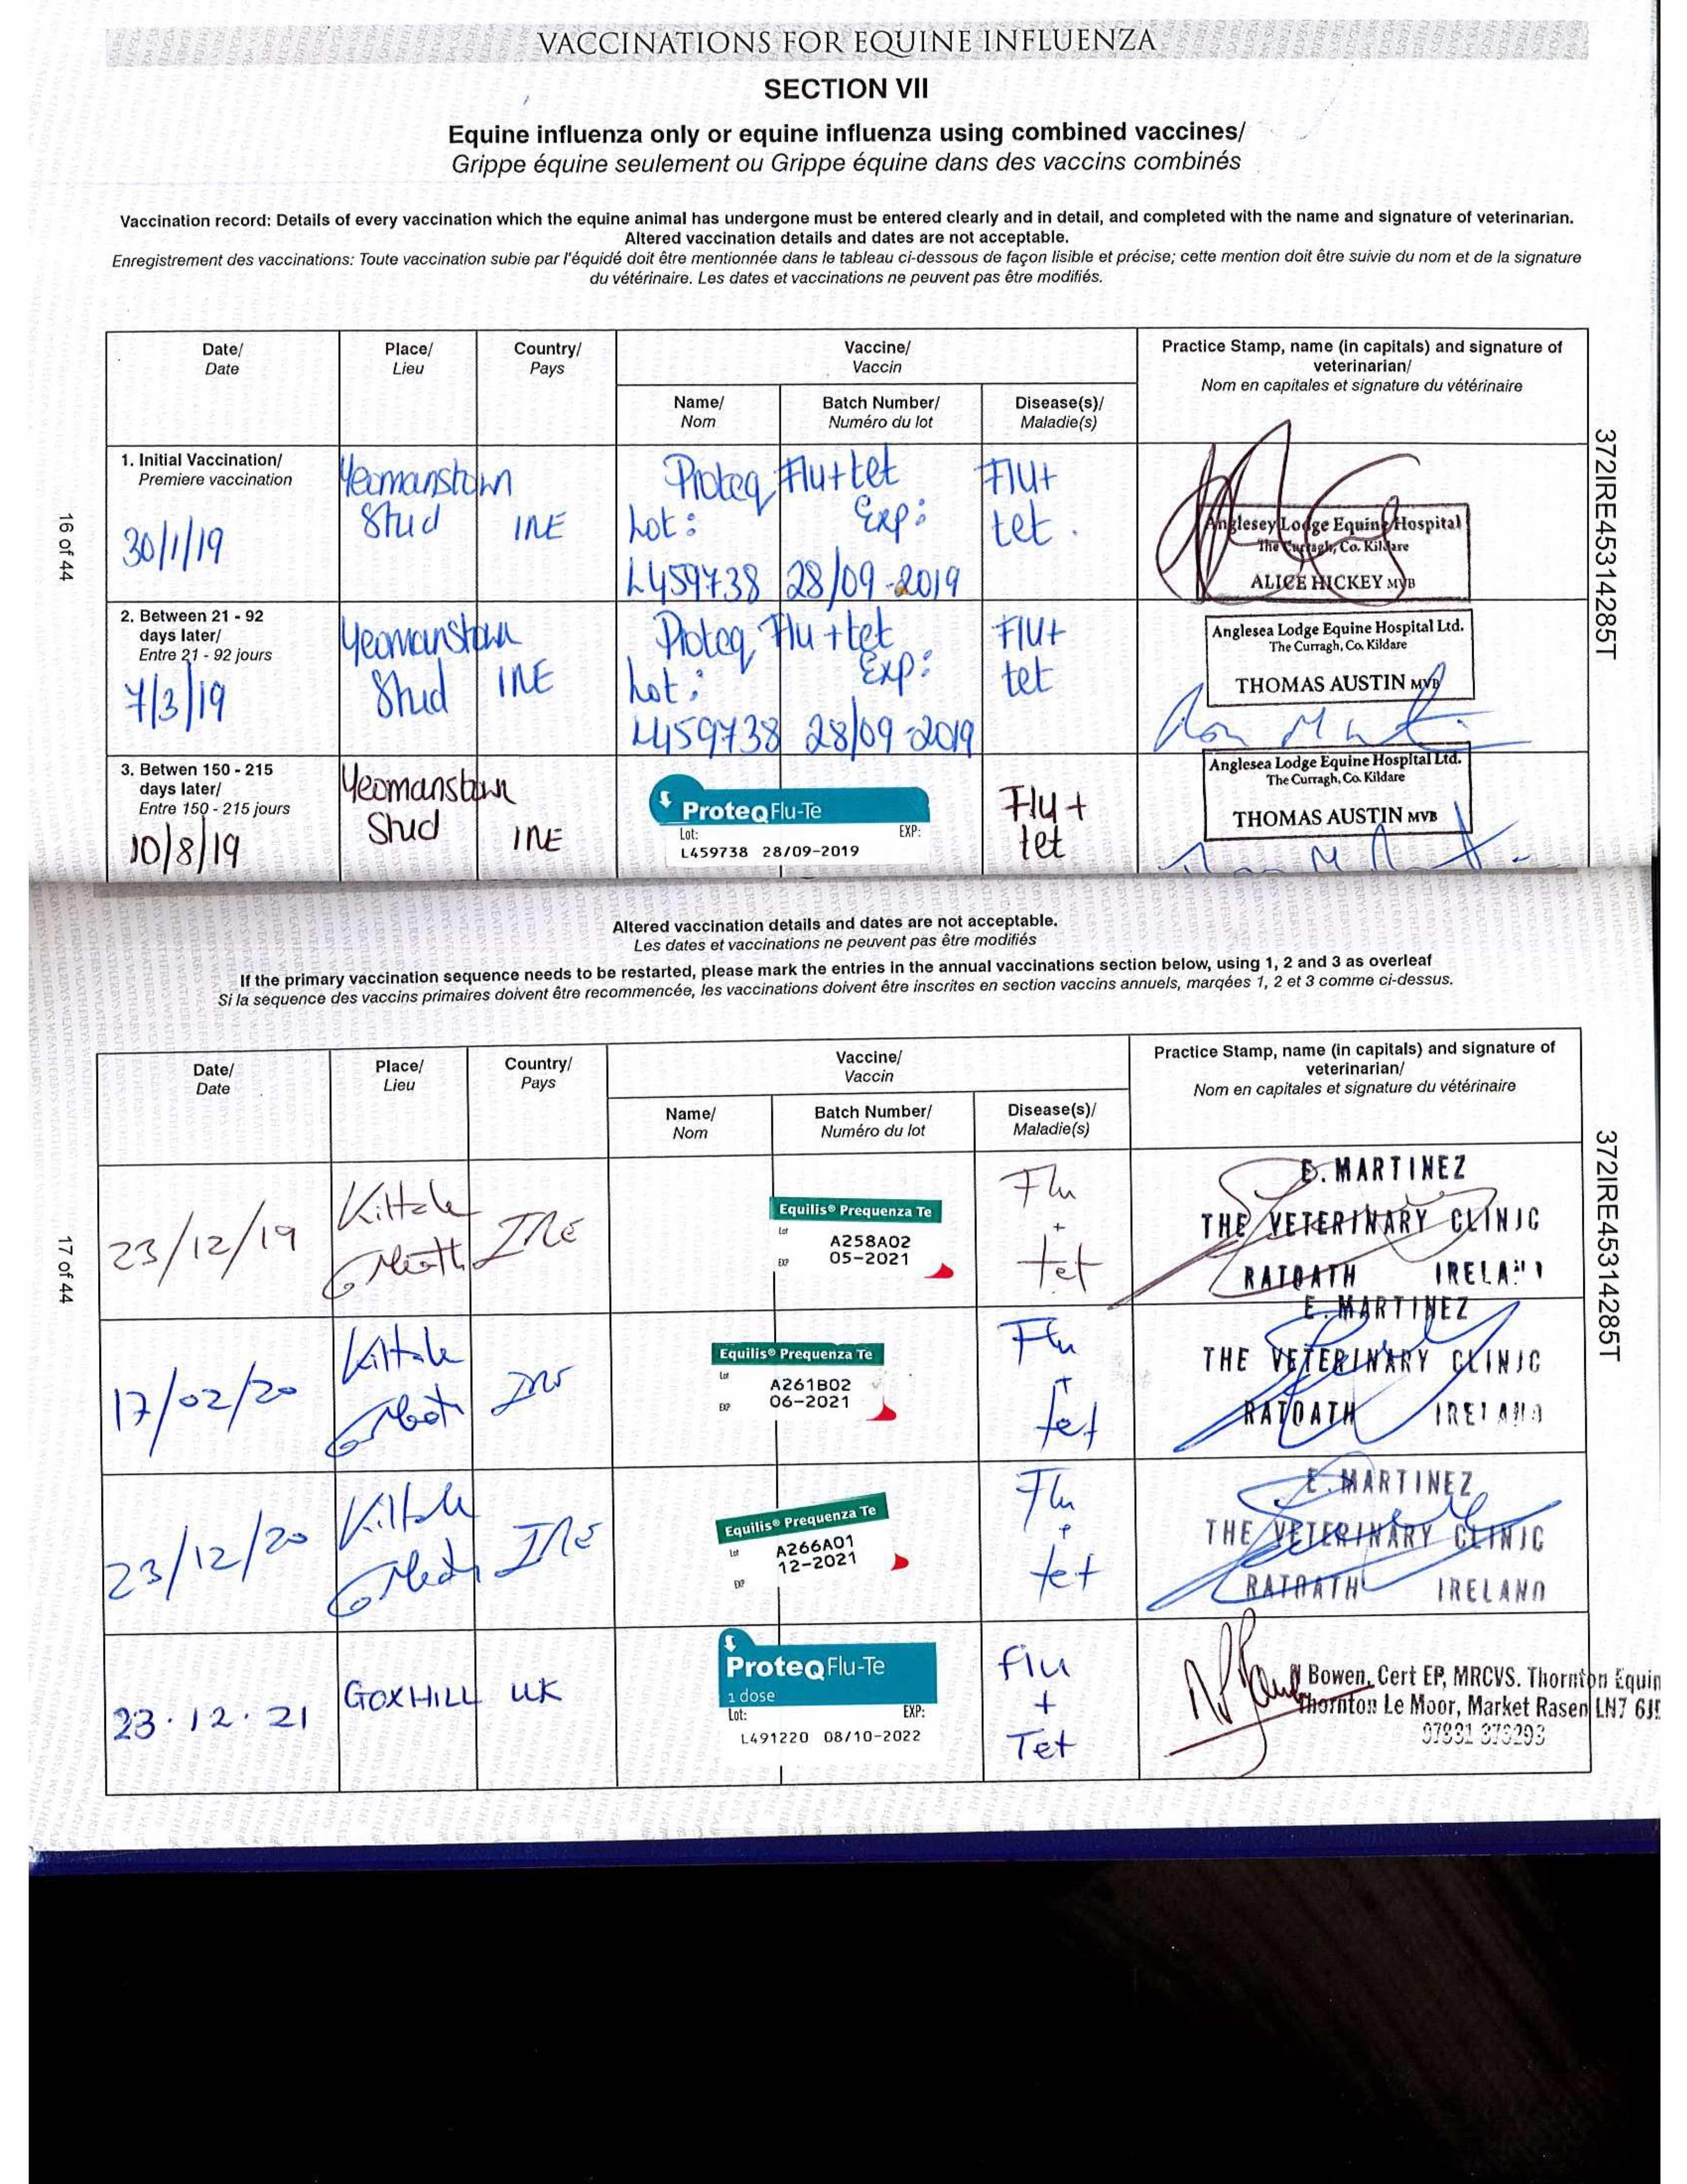 VACCINATIONS FOR EQUINE INFLUENZA
SECTION VII
Equine influenza only or equine influenza using combined vaccines/
Grippe équine seulement ou Grippe équine dans des vaccins combinés
Vaccination record: Details of every vaccination which the equine animal has undergone must be entered clearly and in detail, and completed with the name and signature of veterinarian.
Altered vaccination details and dates are not acceptable.
Enregistrement des vaccinations: Toute vaccination subie par l'équidé doit être mentionnée dans le tableau ci-dessous de façon lisible et précise; cette mention doit être suivie du nom et de la signature
du vétérinaire. Les dates et vaccinations ne peuvent pas être modifiés.
Date/
Date
Place/
Lieu
Country/
Pays
Vaccine/
Vaccin
Name/
Nom
Batch Number/
Numéro du lot
Disease(s)/
Maladie(s)
Practice Stamp, name (in capitals) and signature of
veterinarian/
Nom en capitales et signature du vétérinaire
1. Initial Vaccination/
Premiere vaccination
30/1/19
Yeomanstown
Stud
IRE
Proteq Flu+tet
Lot: Exp:
L459738 28/09-2019
Flu+
tet.
Anglesey Lodge Equine Hospital
The Curragh, Co. Kildare
ALICE HICKEY MVB
2. Between 21 - 92
days later/
Entre 21 - 92 jours
7/3/19
Yeomanstown
Stud
IRE
Proteq Flu+tet
Lot: Exp:
L459738 28/09-2019
Flu+
tet
Anglesea Lodge Equine Hospital Ltd.
The Curragh, Co. Kildare
THOMAS AUSTIN MVB
3. Betwen 150 - 215
days later/
Entre 150 - 215 jours
10/8/19
Yeomanstown
Stud
IRE
ProteqFlu-Te
Lot: EXP:
L459738 28/09-2019
Flu+
tet
Anglesea Lodge Equine Hospital Ltd.
The Curragh, Co. Kildare
THOMAS AUSTIN MVB
16 of 44
372IRE45314285T
Altered vaccination details and dates are not acceptable.
Les dates et vaccinations ne peuvent pas être modifiés
If the primary vaccination sequence needs to be restarted, please mark the entries in the annual vaccinations section below, using 1, 2 and 3 as overleaf
Si la sequence des vaccins primaires doivent être recommencée, les vaccinations doivent être inscrites en section vaccins annuels, marqées 1, 2 et 3 comme ci-dessus.
Date/
Date
Place/
Lieu
Country/
Pays
Vaccine/
Vaccin
Name/
Nom
Batch Number/
Numéro du lot
Disease(s)/
Maladie(s)
Practice Stamp, name (in capitals) and signature of
veterinarian/
Nom en capitales et signature du vétérinaire
23/12/19
IRE
Equilis® Prequenza Te
Lot
A258A02
EXP
05-2021
Flu
+
tet
E. MARTINEZ
THE VETERINARY CLINIC
RATOATH IRELAND
17/02/20
Equilis® Prequenza Te
Lot
A261B02
EXP
06-2021
Flu
+
tet
E. MARTINEZ
THE VETERINARY CLINIC
RATOATH IRELAND
23/12/20
IRE
Equilis® Prequenza Te
Lot
A266A01
12-2021
EXP
Flu
+
tet
E. MARTINEZ
THE VETERINARY CLINIC
RATOATH IRELAND
23.12.21
GOXHILL
UK
ProteqFlu-Te
1 dose
Lot: EXP:
L491220 08/10-2022
flu
+
Tet
Bowen, Cert EP, MRCVS. Thornton Equin
Thornton Le Moor, Market Rasen LN7 6J
17 of 44
372IRE45314285T